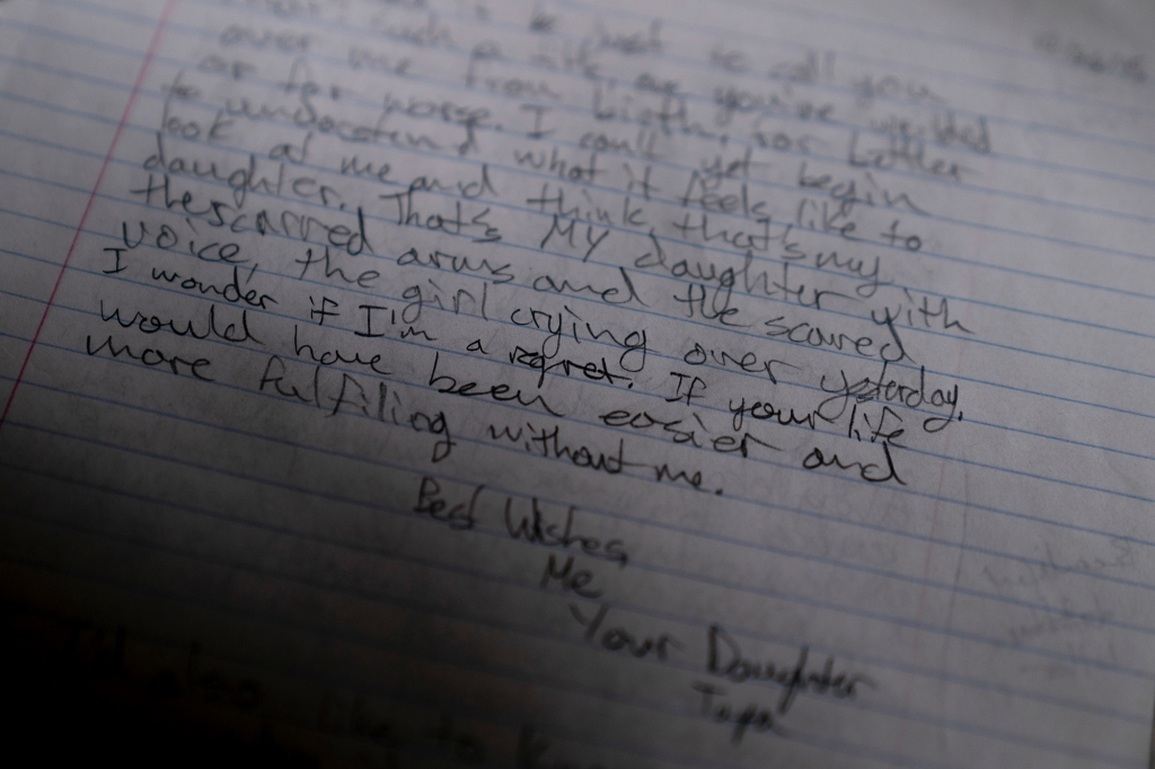 just to call you
over me from birth, for better
or for worse. I can't yet begin
to understand what it feels like to
look at me and think, that's my
daughter. That's MY daughter with
the scarred arms and the scared
voice, the girl crying over yesterday.
I wonder if I'm a regret. If your life
would have been easier and
more fulfiling without me.
Best Wishes,
Me
Your Daughter
also like to